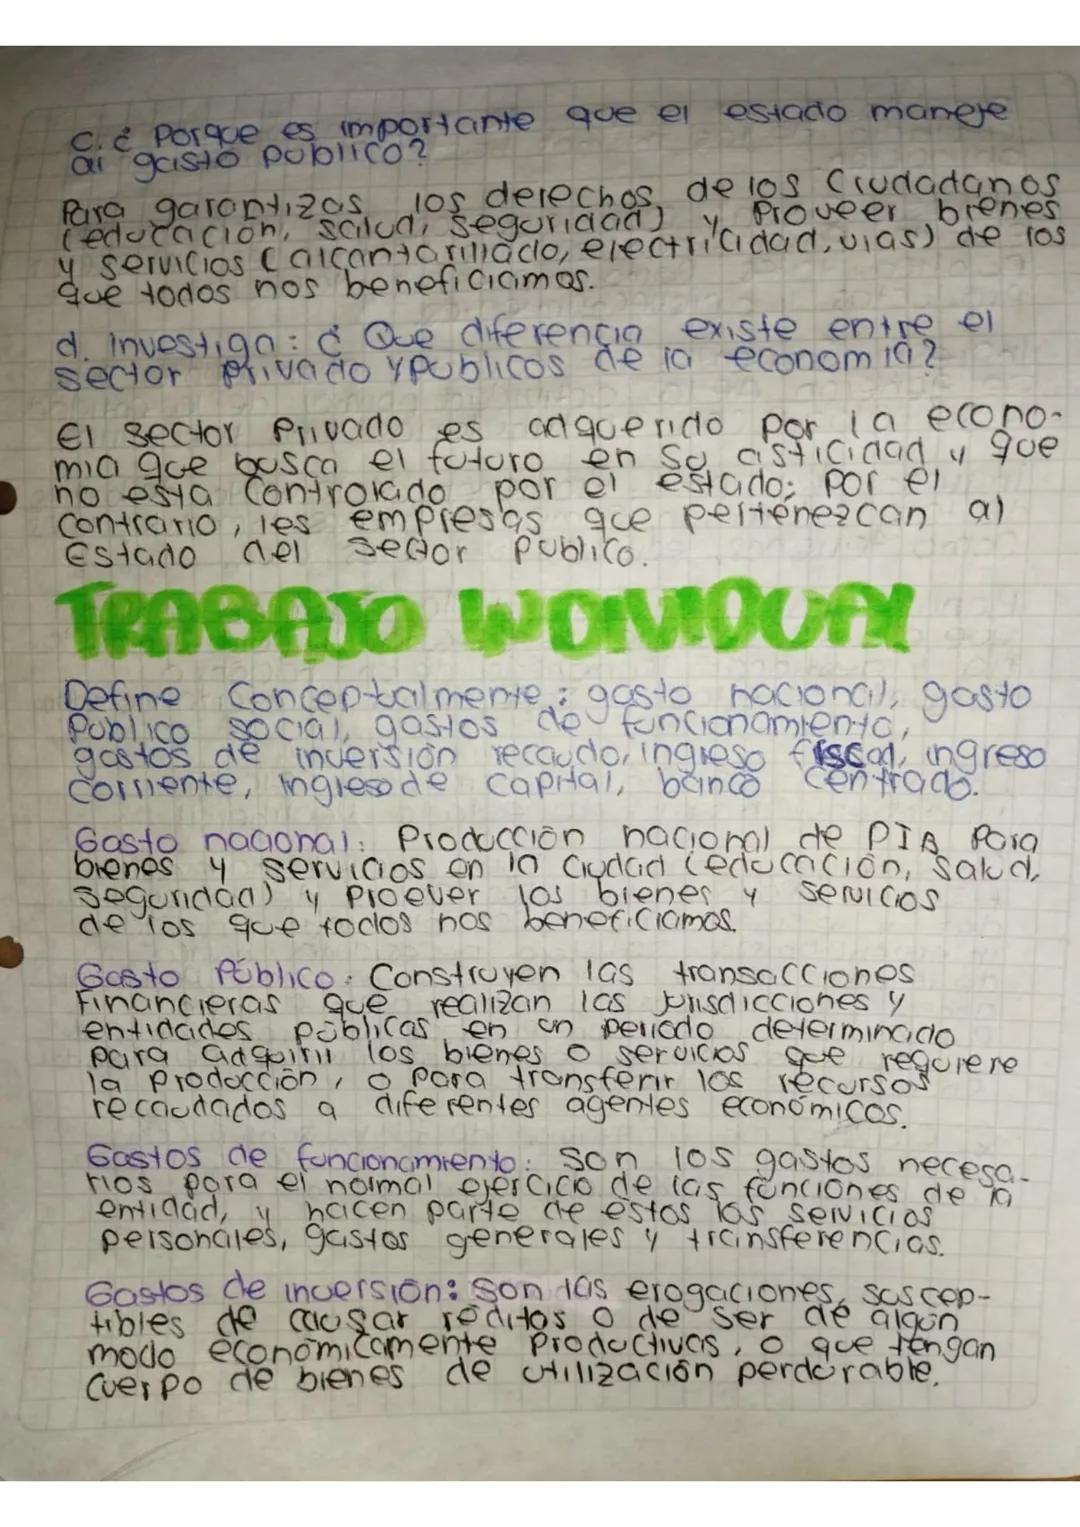 c. ¿ Porque es importante que el estado maneje
al gasto público?
Para garantizas los derechos de los Ciudadanos
(educación, salud, seguridad) y Proveer bienes
y servicios (alcantarillado, electricidad, vias) de los
que todos nos beneficiamos.
d. Investiga: ¿ Que diferencia existe entre el
sector privado y publicos de la economia?
El sector Privado es adquerido por la econo-
mia que busca el futuro en su asticidad y que
no esta Controlado por el estado; por el
contrario, les empresas que pertenezcan al
Estado del sector público.
TRABAJO INDIVIDUAL
Define Conceptalmente: gasto nacional, gasto
Público social, gastos de funcionamiento,
gastos de inversión recaudo, ingreso fiscal, ingreso
corriente, ingreso de capital, banco centrado.
Gasto nacional: Producción nacional de PIA Para
bienes y servicios en la Ciudad (educación, Salud,
seguridad) y Proever los bienes y servicios
de los que todos nos beneficiamos.
Gasto Público: Construyen las transacciones
Financieras que realizan las jurisdicciones y
entidades públicas en un periodo determinado
para adquirir los bienes o servicios que requiere
la Producción, o para transferir los recursos
recaudados a diferentes agentes económicos.
Gastos de funcionamiento: Son los gastos necesa-
rios para el normal ejercicio de las funciones de la
entidad, y hacen parte de estos los servicios
personales, gastos generales y transferencias.
Gastos de inversión: Son las erogaciones suscep-
tibles de causar réditos o de ser de algún
modo económicamente Productivas, o que tengan
Cuerpo de bienes de utilización perdurable.